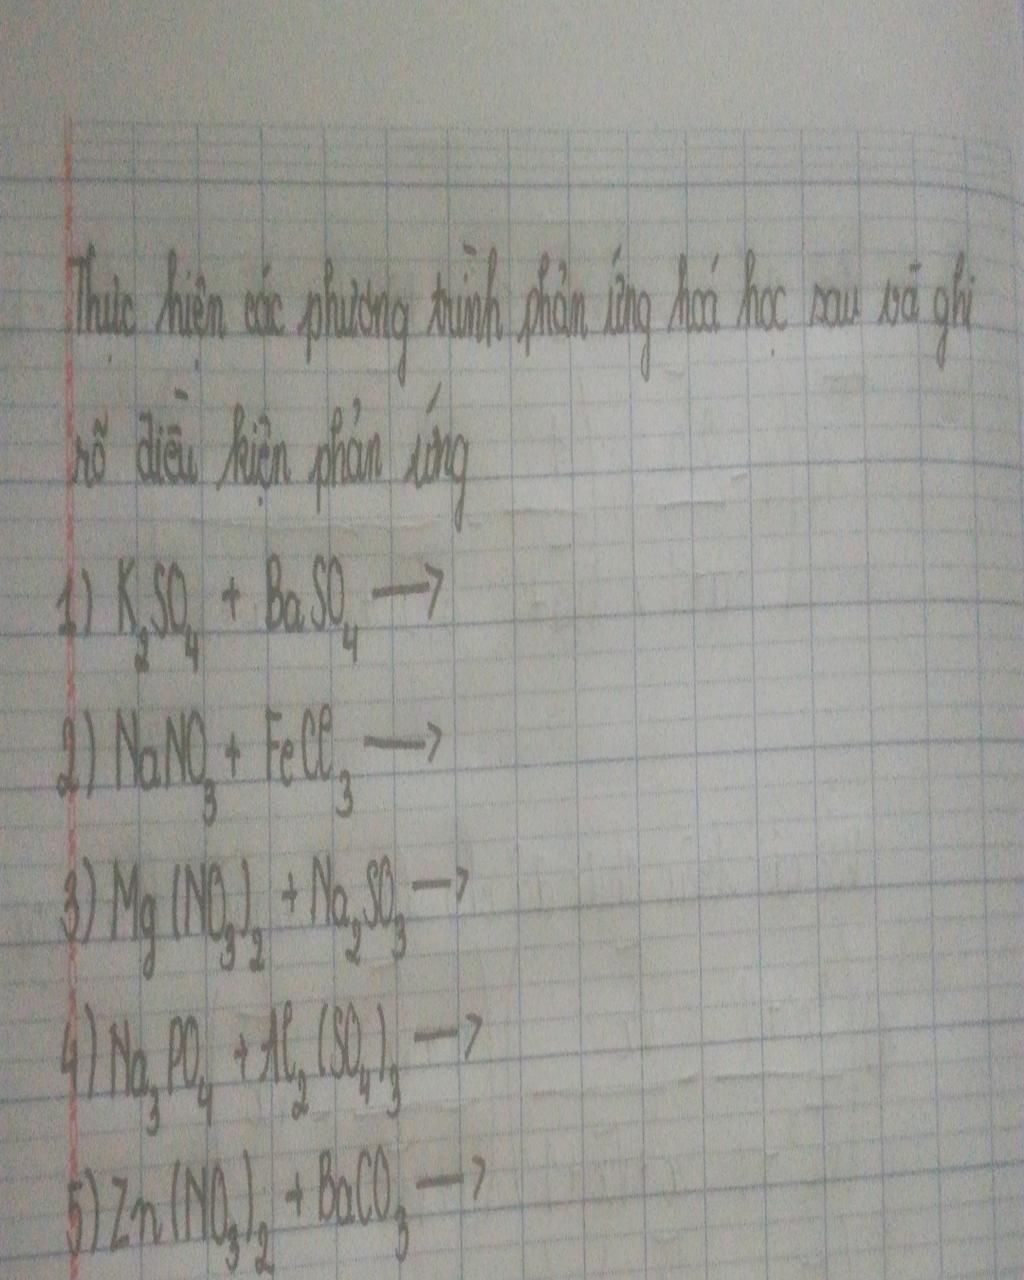 Thực hiện các phương trình phản ứng hoá học sau và ghi
rõ điều kiện phản ứng
1) K₂SO₄ + BaSO₄ ⟶
2) NaNO₃ + FeCl₃ ⟶
3) Mg(NO₃)₂ + Na₂SO₃ ⟶
4) Na₃PO₄ + Al₂(SO₄)₃ ⟶
5) Zn(NO₃)₂ + BaCO₃ ⟶